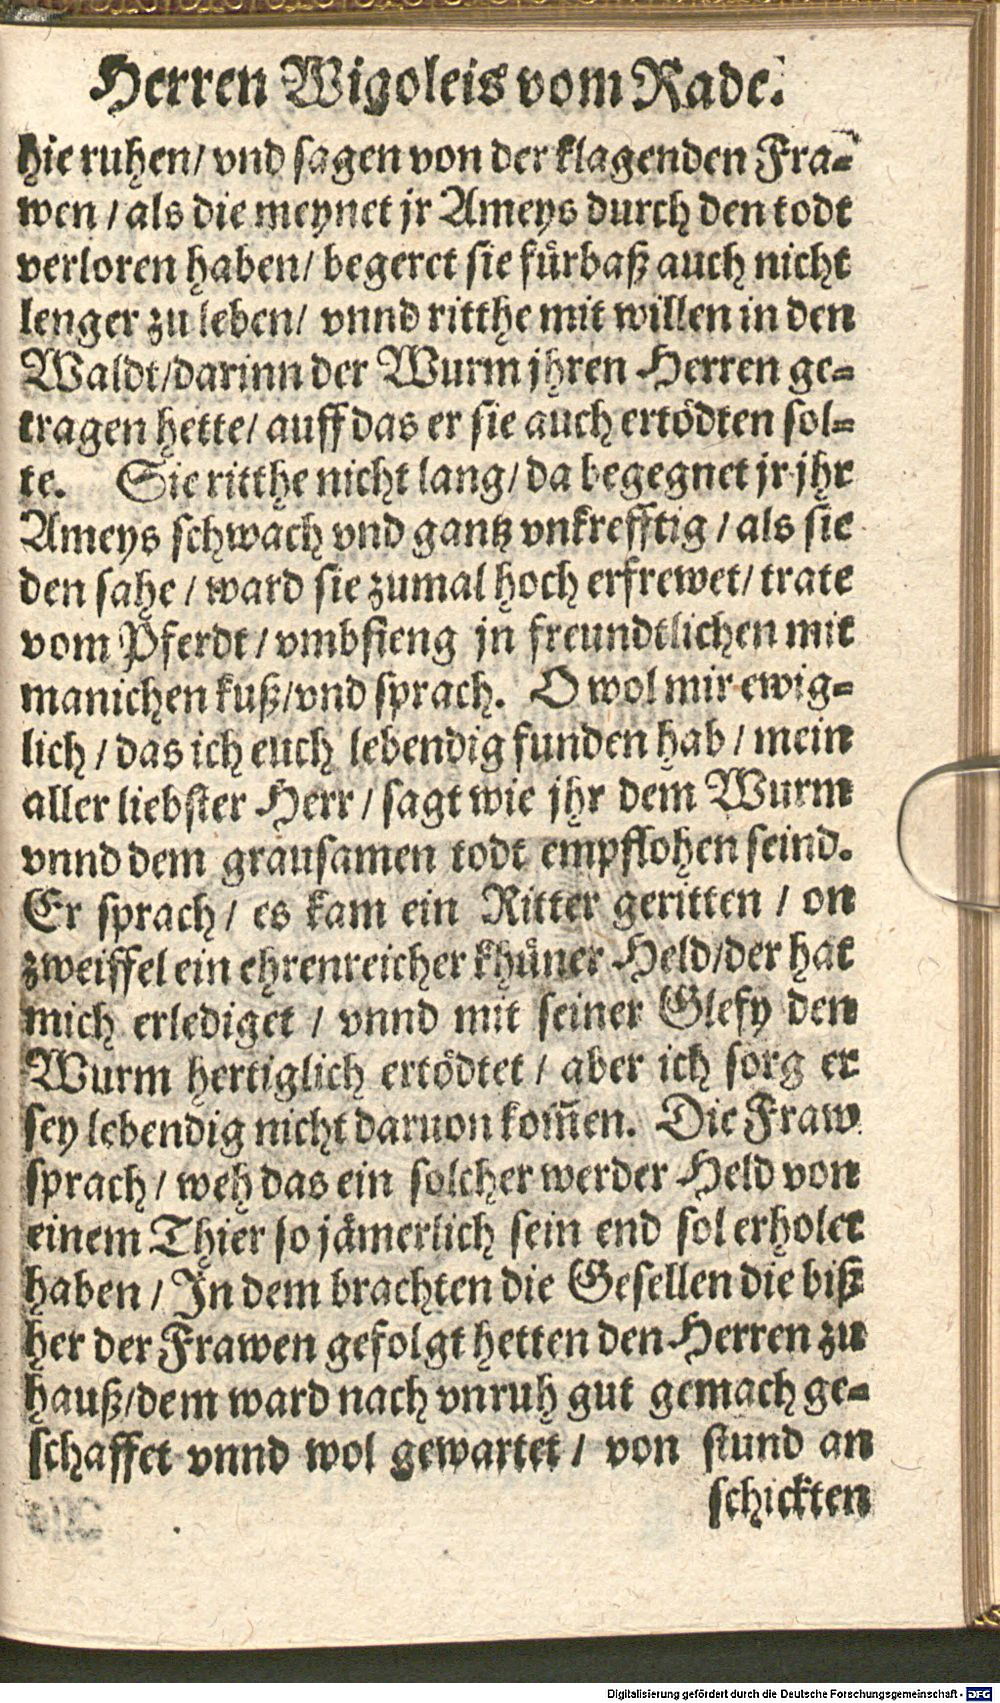 Herren Wigoleis vom Rade.
hie ruhen/ vnd sagen von der klagenden Fra-
wen / als die meynet jr Ameys durch den todt
verloren haben/ begeret sie fürbaß auch nicht
lenger zu leben/ vnnd ritthe mit willen in den
Waldt/darinn der Wurm jhren Herren ge-
tragen hette/ auff das er sie auch ertödten sol-
te. Sie ritthe nicht lang/ da begegnet jr jhr
Ameys schwach vnd gantz vnkrefftig / als sie
den sahe / ward sie zumal hoch erfrewet/ trate
vom Pferdt / vmbfieng jn freundtlichen mit
manichen kuß/vnd sprach. O wol mir ewig-
lich / das ich euch lebendig funden hab / mein
aller liebster Herr / sagt wie jhr dem Wurm
vnnd dem grausamen todt empflohen seind.
Er sprach / es kam ein Ritter geritten / on
zweiffel ein ehrenreicher khüner Held/der hat
mich erlediget / vnnd mit seiner Glefy den
Wurm hertiglich ertödtet / aber ich sorg er
sey lebendig nicht daruon kom̃en. Die Fraw
sprach / weh das ein solcher werder Held von
einem Thier so jämerlich sein end sol erholet
haben / In dem brachten die Gesellen die biß
her der Frawen gefolgt hetten den Herren zu
hauß/dem ward nach vnruh gut gemach ge-
schaffet vnnd wol gewartet / von stund an
schickten
Digitalisierung gefördert durch die Deutsche Forschungsgemeinschaft - DFG